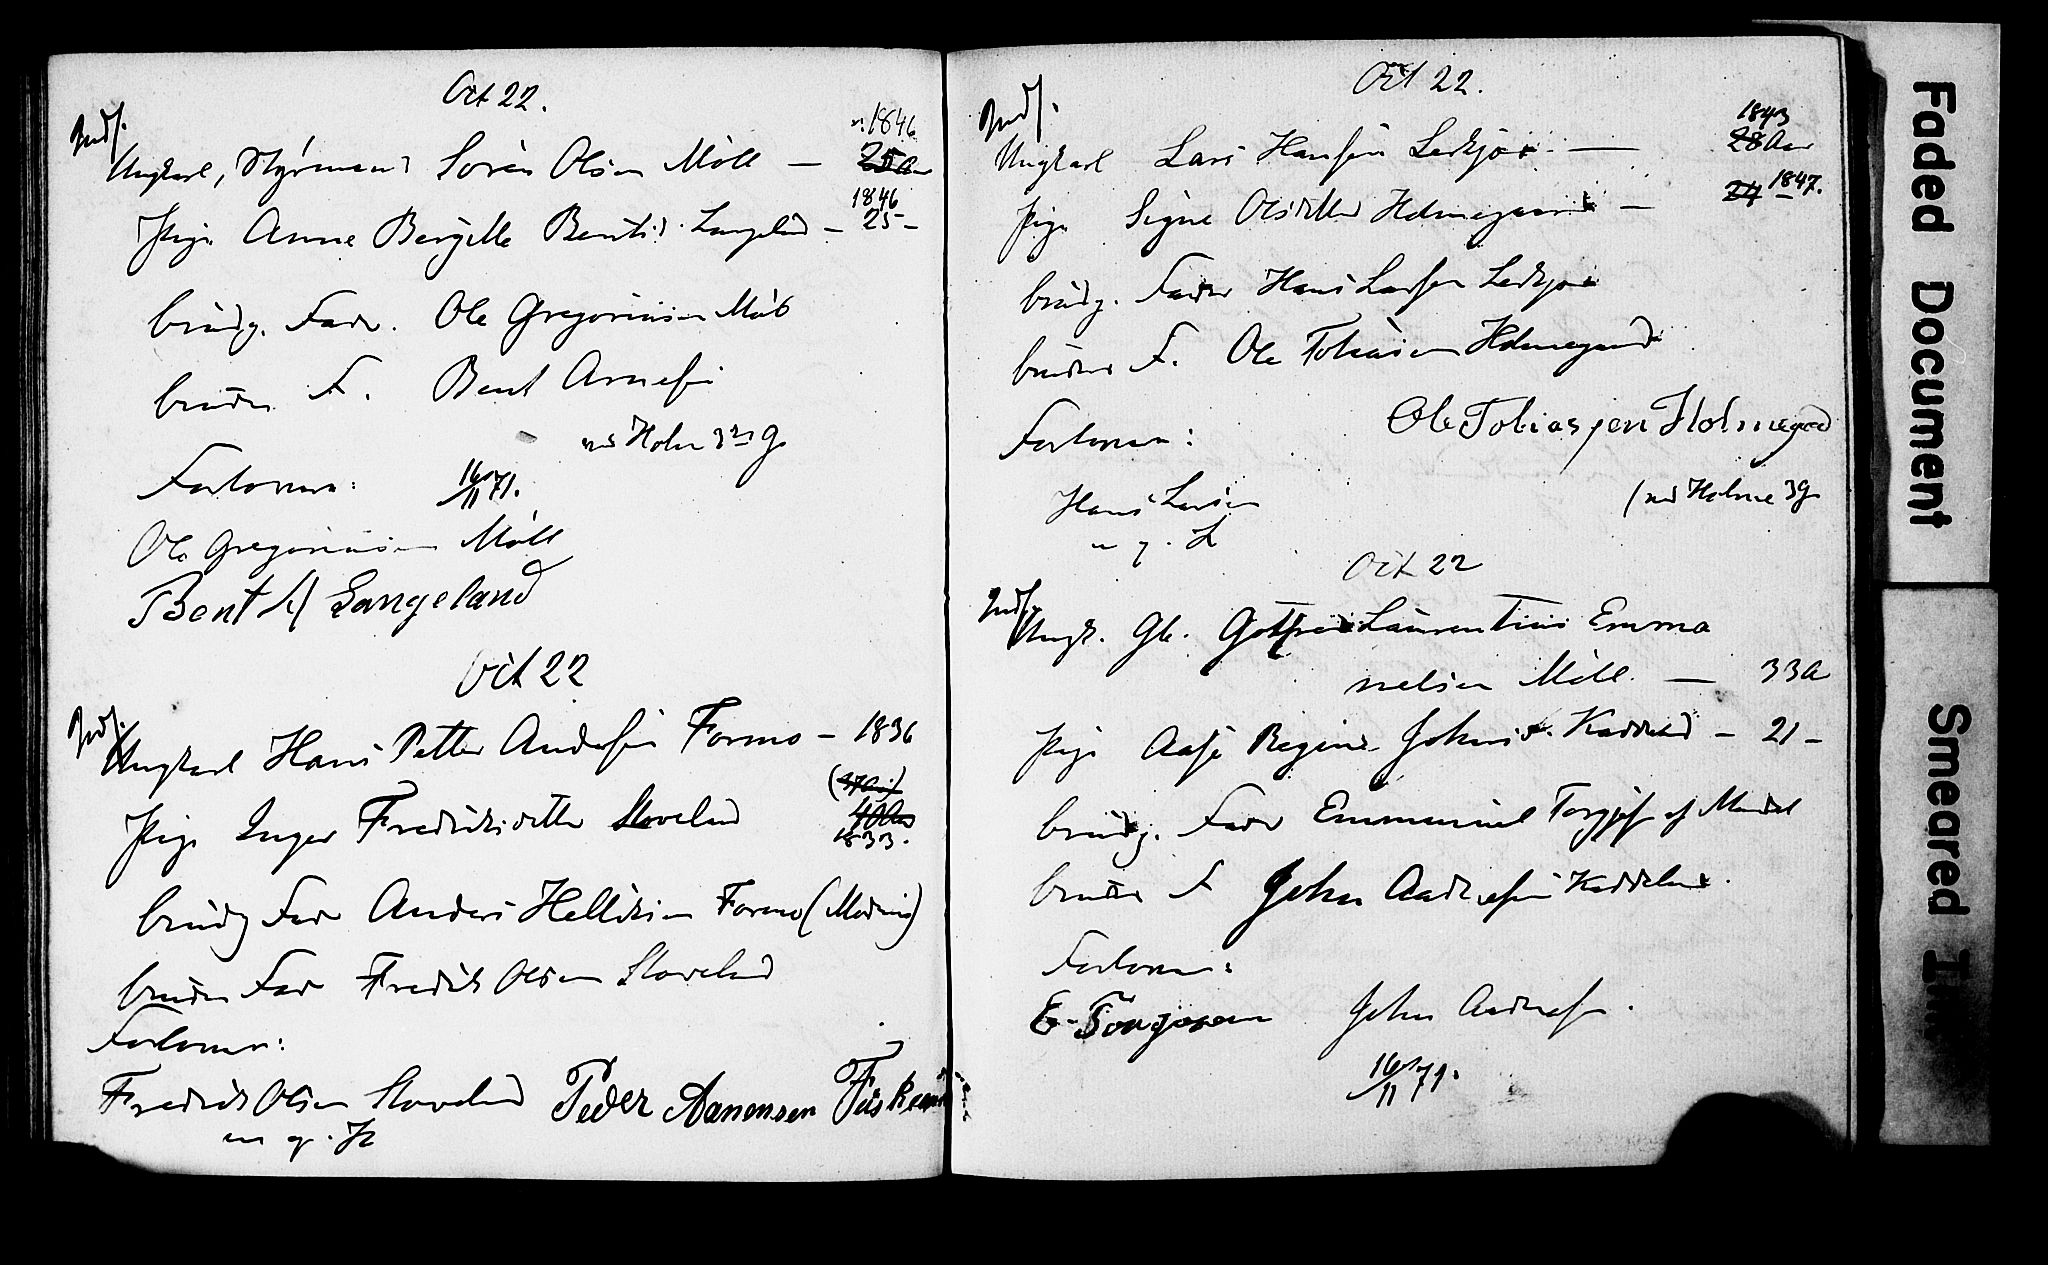 Oct 22.
Indf.
n. 1846
Ungkarl, Styrmand Sören Olsen Möll — 25 Aar
1846
Pige Anne Bergitte Bentsd. Langeland — 25 –
brudg. Fader. Ole Gregoriusen Möll
brudens F. Bent Arnesen
ved Holm 3die G
Forlovere: 16/11 71.
Ole Gregoriusen Möll
Bent Langeland
Oct 22
Indf.
Ungkarl Hans Petter Andersen Formo – 1836
Pige Inger Fredriksdatter Stoveland 40 Aar
1833.
brudg Fader Anders Helliksen Formo
brudens Fader Fredrik Olsen Stoveland
Forlovere:
Fredrik Olsen Stoveland Peder Aanensen
m. p. P.
Oct 22.
Indf.
1843
Ungkarl Lars Hansen — 28 Aar
Pige Signe Olsdatter Holmegaard — 24 1847.
brudg. Fader Hans Larsen
brudens F. Ole Tobiasen Holmegaard
Ole Tobiasen Holmegaard
Forlovere:
Hans Larsen
(ved Holme 3 G
Oct 22
Indf.
Ungk. Gottfried Laurentius Emma
nelsen Möll. — 33 A
Pige Aase Regine Johnsd. — 21 –
brudg. Fader Emmanuel Torgjs. af Mandal
brudens F John Aadnesen
Forlovere:
E. Torgjesen John Aadnesen.
16/11 71.
Faded Document
Smeared Ink